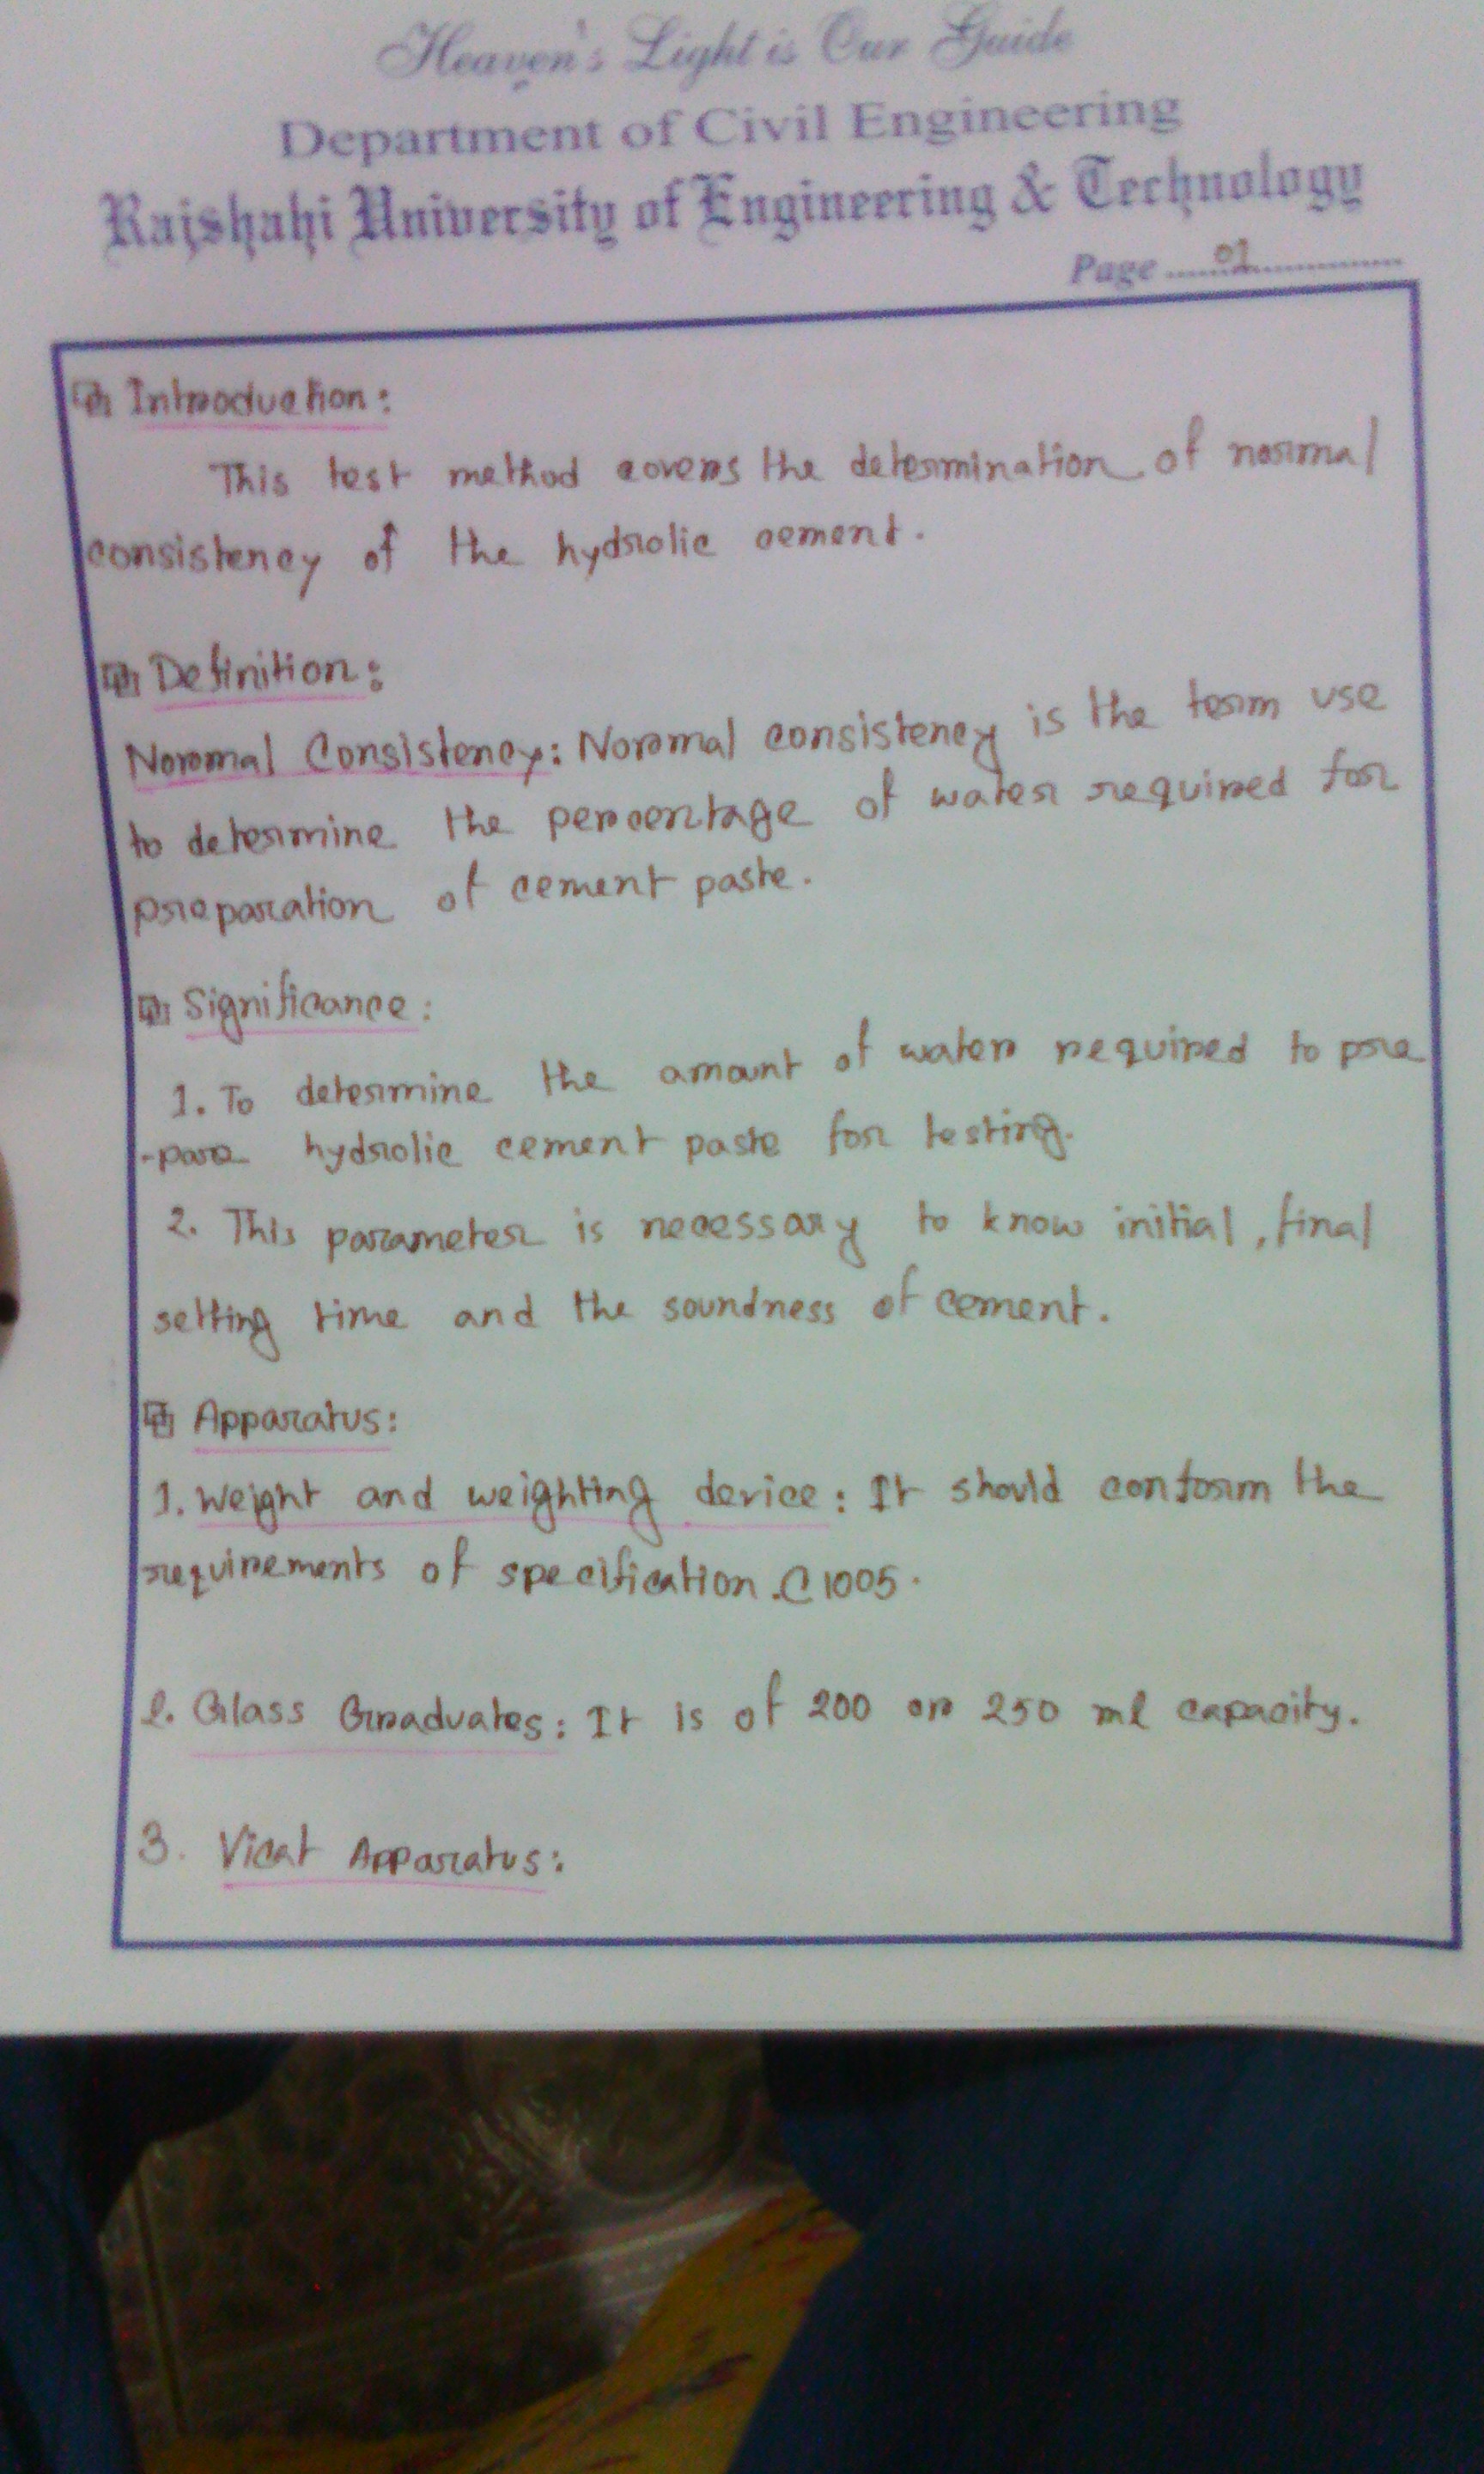 Heaven's Light is Our Guide
Department of Civil Engineering
Rajshahi University of Engineering & Technology
Page ........01................
Introduction:
This test method covers the determination of normal
consistency of the hydrolic cement.
Definition:
Normal Consistency: Normal consistency is the term use
to determine the percentage of water required for
preparation of cement paste.
Significance:
1. To determine the amount of water required to pre
-pare hydrolic cement paste for testing.
2. This parameter is necessary to know initial, final
setting time and the soundness of cement.
Apparatus:
1. Weight and weighting device: It should conform the
requirements of specification C1005.
2. Glass Graduates: It is of 200 or 250 ml capacity.
3. Vicat Apparatus: